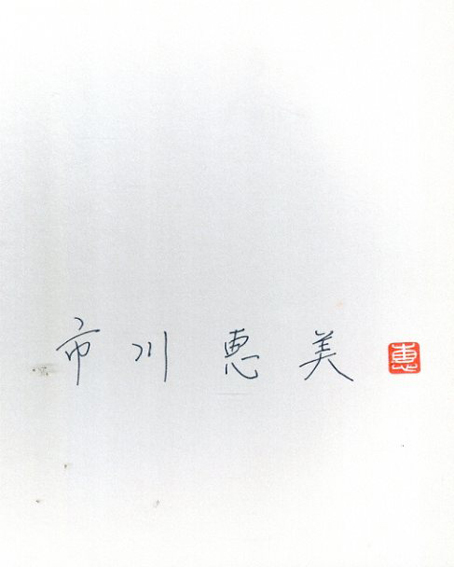 市川恵美 恵